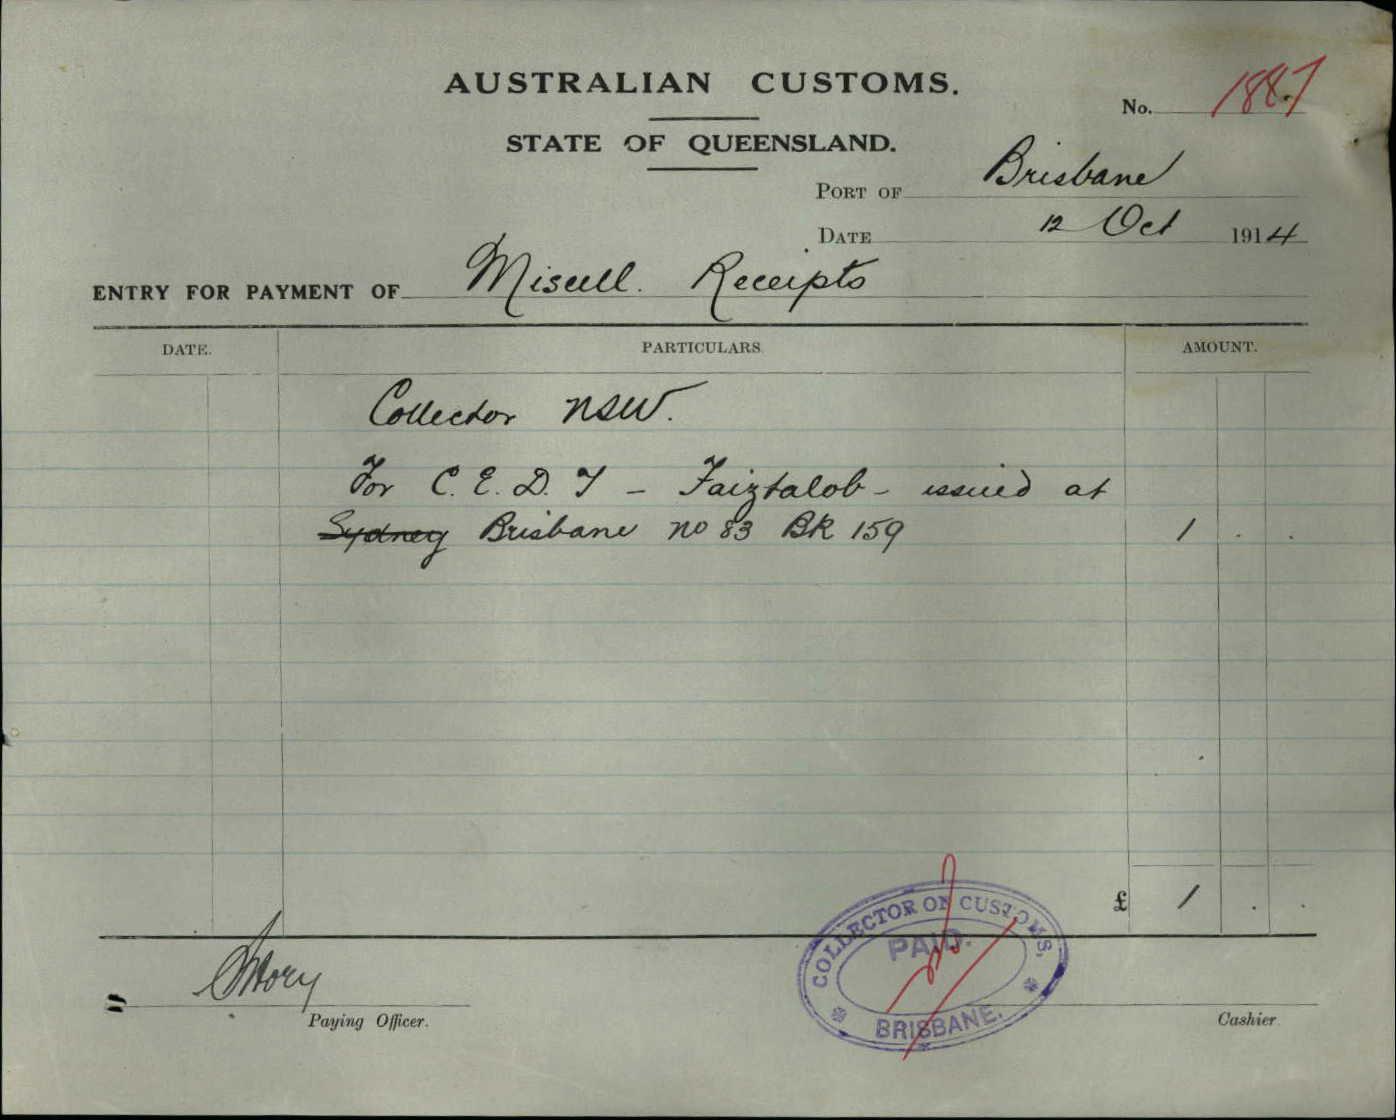 AUSTRALIAN CUSTOMS.
No. 1887
STATE OF QUEENSLAND.
PORT OF Brisbane
DATE 12 Oct 1914
ENTRY FOR PAYMENT OF Miscell. Receipts
DATE. PARTICULARS. AMOUNT.
Collector NSW.
For C. E. D. T - Faiztalob - issued at
Sydney Brisbane no 83 BK 159 1 . .
£ 1 . .
COLLECTOR OF CUSTOMS.
PAID.
BRISBANE.
Paying Officer.
Cashier